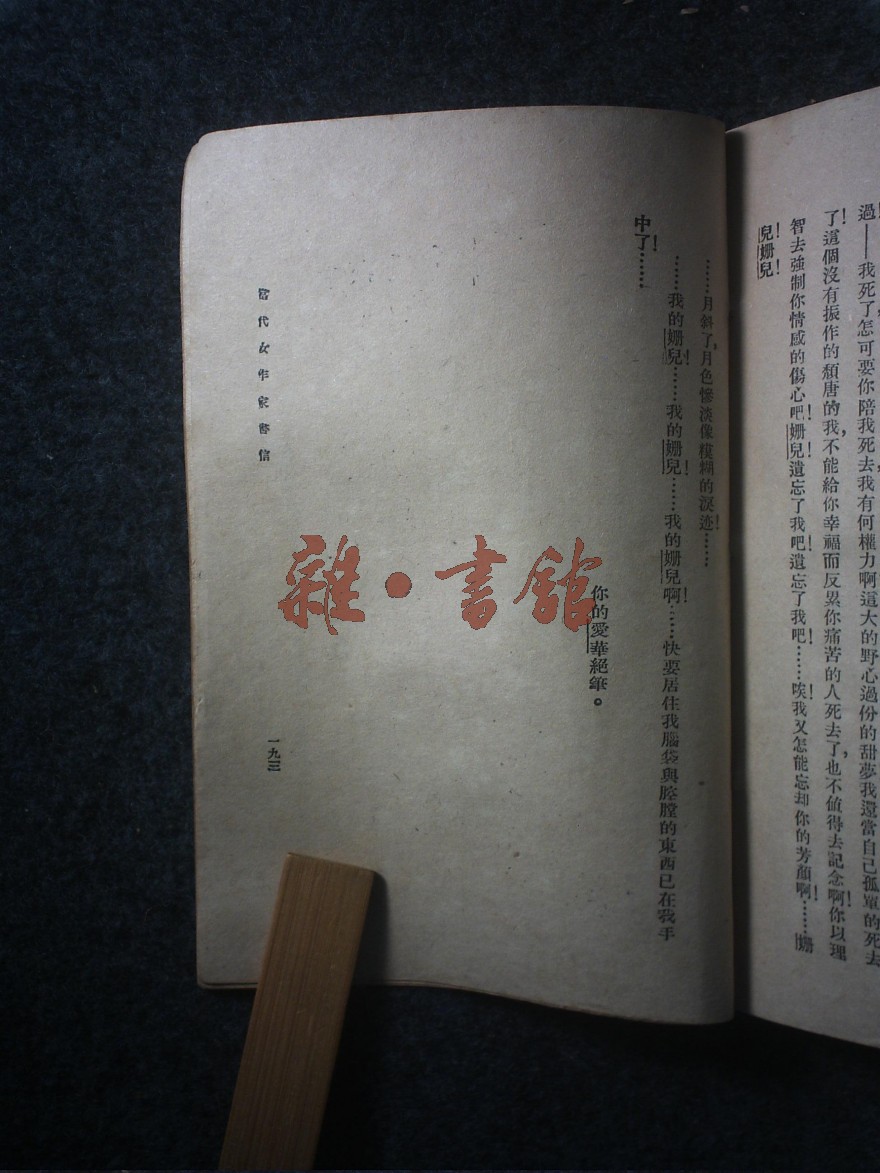 過！——我死了，怎可要你陪我死去，我有何權力啊！這大的野心過份的甜夢，我還當自己孤單的死去
了！這個沒有振作的頹唐的我，不能給你幸福而反累你痛苦的人死去了，也不值得去記念啊！你以理
智去強制你情感的傷心吧！姍兒！遺忘了我吧！遺忘了我吧！……唉！我又怎能忘却你的芳顏啊！……姍
兒！姍兒！
……月斜了，月色慘淡像糢糊的淚迹！……
……我的姍兒！……我的姍兒！……我的姍兒啊！……快要居住我腦袋與腔膛的東西已在我手
中了！……
你的愛華絕筆。
當代女作家書信
一九三
雜·書館